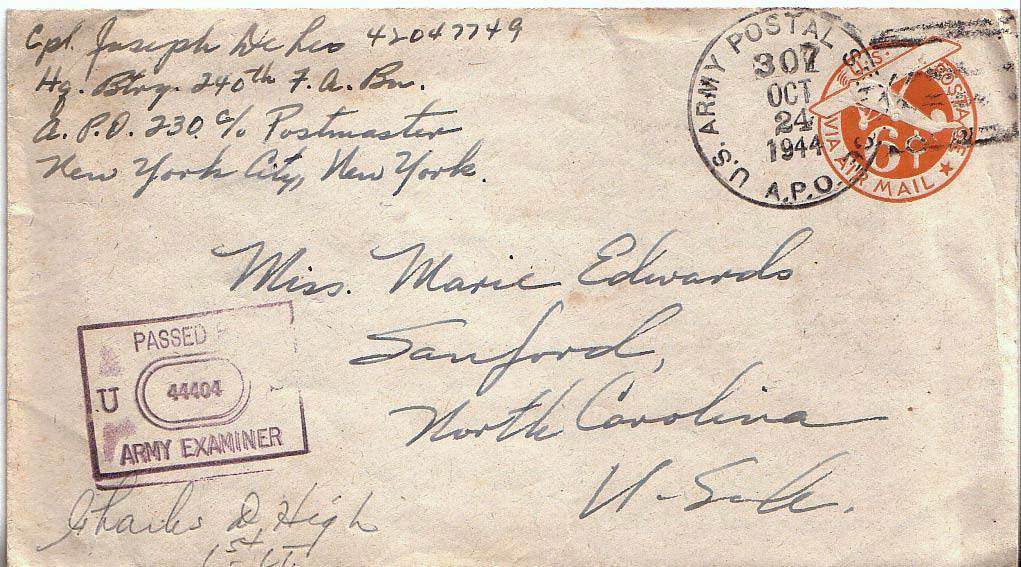 Cpl. Joseph De Leo 42047749
Hq. Btry. 240th F. A. Bn.
A. P. O. 230 c/o Postmaster
New York City, New York.
U.S. ARMY POSTAL
A.P.O.
307
OCT
24
1944
U.S. POSTAGE
6¢
VIA AIR MAIL
Miss. Marie Edwards
Sanford,
North Carolina
U.S.A.
PASSED
U
44404
ARMY EXAMINER
Charles D. High
1st Lt.